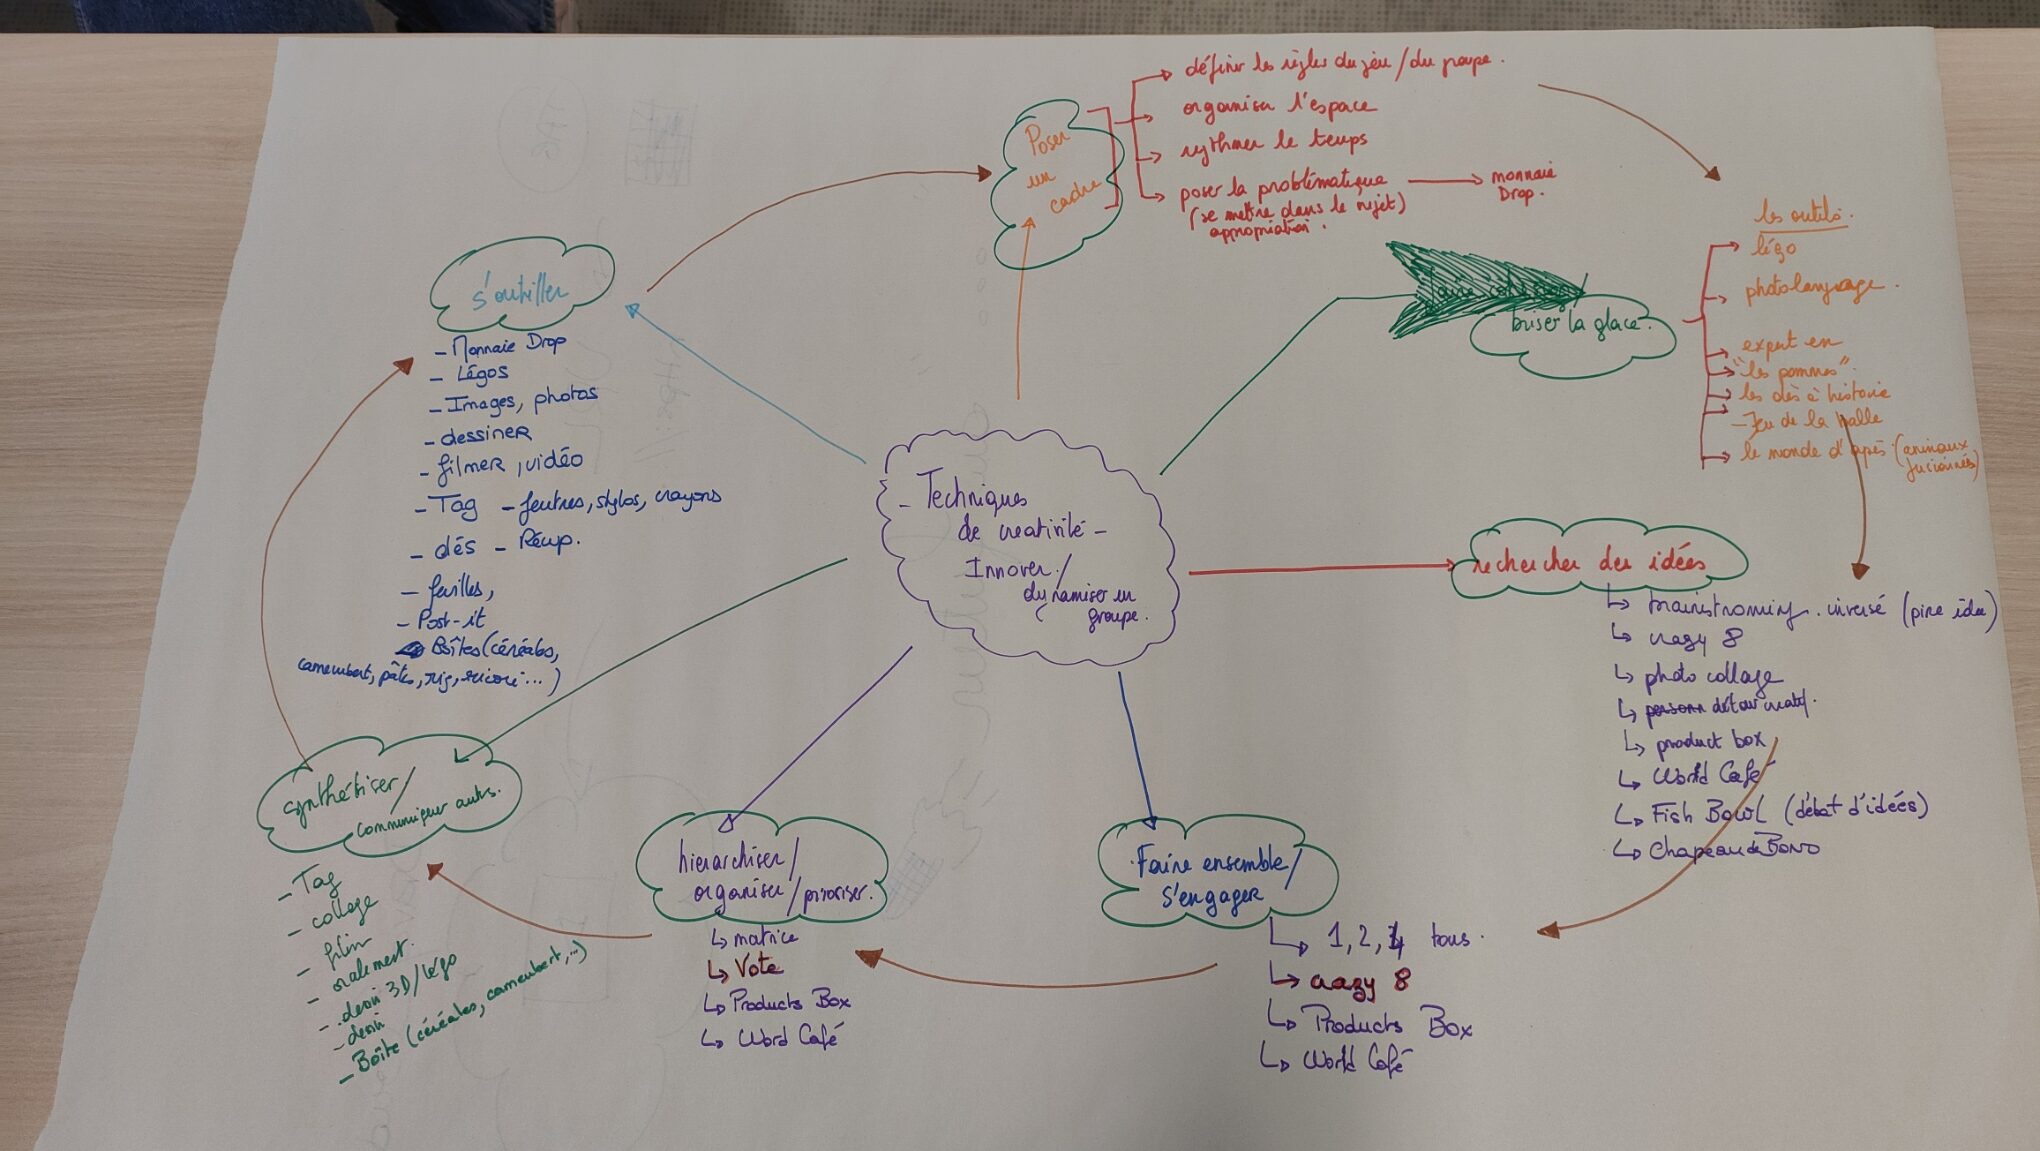 Techniques
de creativité -
Innover /
dynamiser en
groupe.
Poser
un
cadre
définir les règles du jeu / du groupe.
organiser l'espace
rythmer le temps
poser la problématique
(se mettre dans le rejet)
appropriation.
monnaie
Drop.
briser la glace.
les outils.
légo
photolangage.
expert en
"les pommes".
les dés à histoire
- Jeu de la balle
le monde d'après (animaux
fusionnés)
rechercher des idées
brainstroming. inversé (pire idée)
crazy 8
photo collage
détour créatif.
product box
World Café
Fish Bowl (débat d'idées)
Chapeau de Bono
Faire ensemble /
s'engager
1, 2, 4 tous.
crazy 8
Products Box
World Café
hiérarchiser /
organiser / prioriser.
matrice
Vote
Products Box
Word Café
synthétiser /
communiquer autrs.
- Tag
- collage
- film
- oralement.
- dessin 3D / légo
- dessin
- Boîte (céréales, camembert, ...)
s'outiller
- Monnaie Drop
- Légos
- Images, photos
- dessiner
- filmer, vidéo
- Tag - feutres, stylos, crayons
- dés - Récup.
- feuilles,
- Post-it
Boîtes (céréales,
camembert, pâtes, riz, ricoré ...)